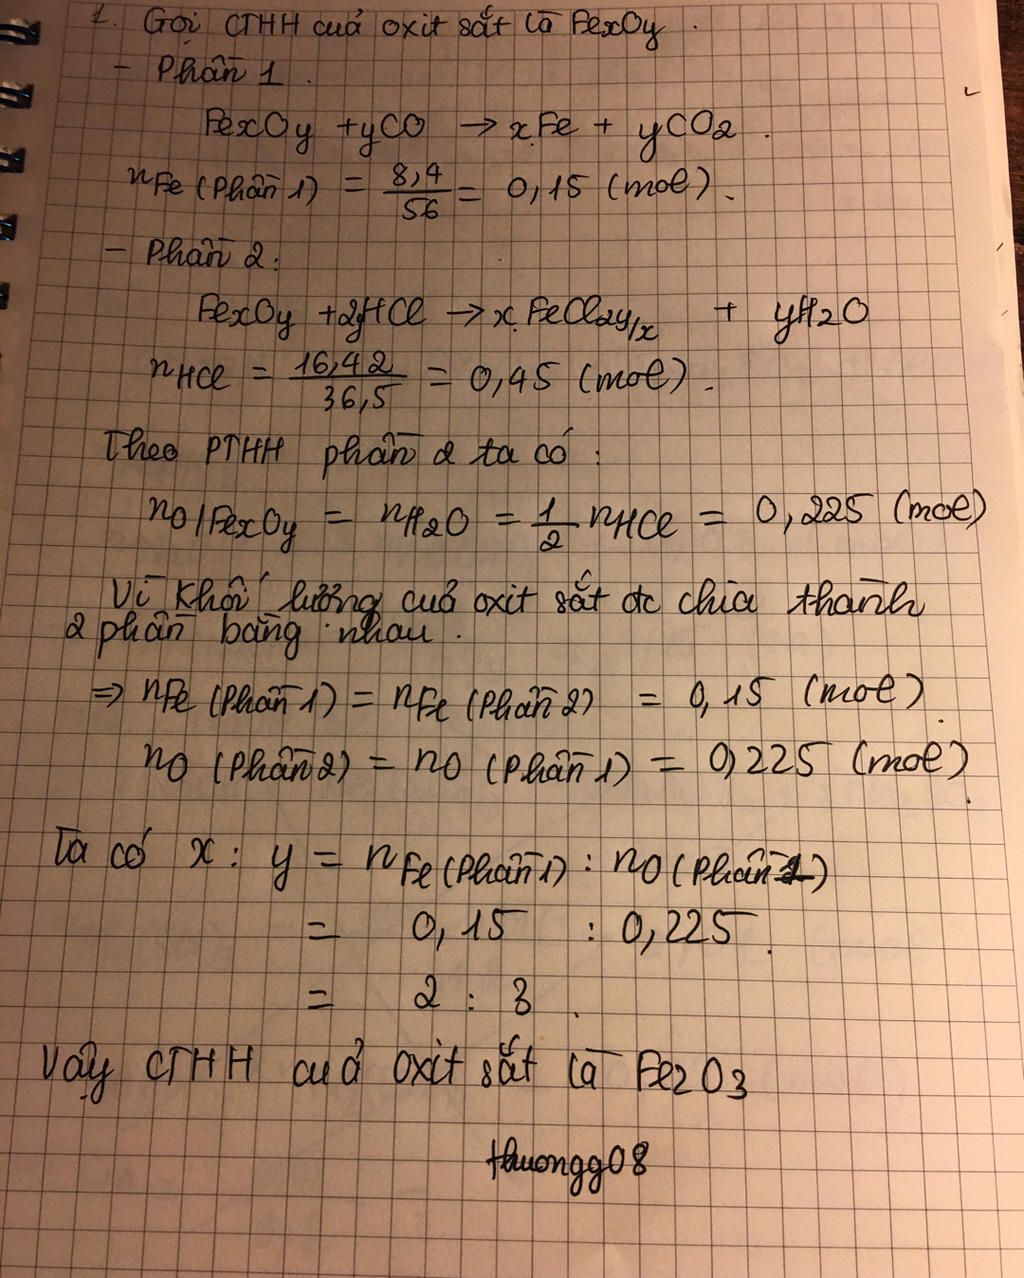 1. Gọi CTHH cuả oxit sắt là FexOy.
- Phần 1.
FexOy + yCO → xFe + yCO2.
nFe (Phần 1) = 8,4/56 = 0,15 (mol).
- Phần 2:
FexOy + 2yHCl → x FeCl2y/x + yH2O
nHCl = 16,42/36,5 = 0,45 (mol).
Theo PTHH phần 2 ta có:
nO/FexOy = nH2O = 1/2 nHCl = 0,225 (mol)
Vì khối lường cuả oxit sắt đc chia thành
2 phần bằng nhau.
⇒ nFe (Phần 1) = nFe (Phần 2) = 0,15 (mol).
nO (Phần 2) = nO (Phần 1) = 0,225 (mol).
Ta có x : y = nFe (Phần 1) : nO (Phần 1)
= 0,15 : 0,225.
= 2 : 3.
Vậy CTHH cuả oxit sắt là Fe2O3
thuongg08